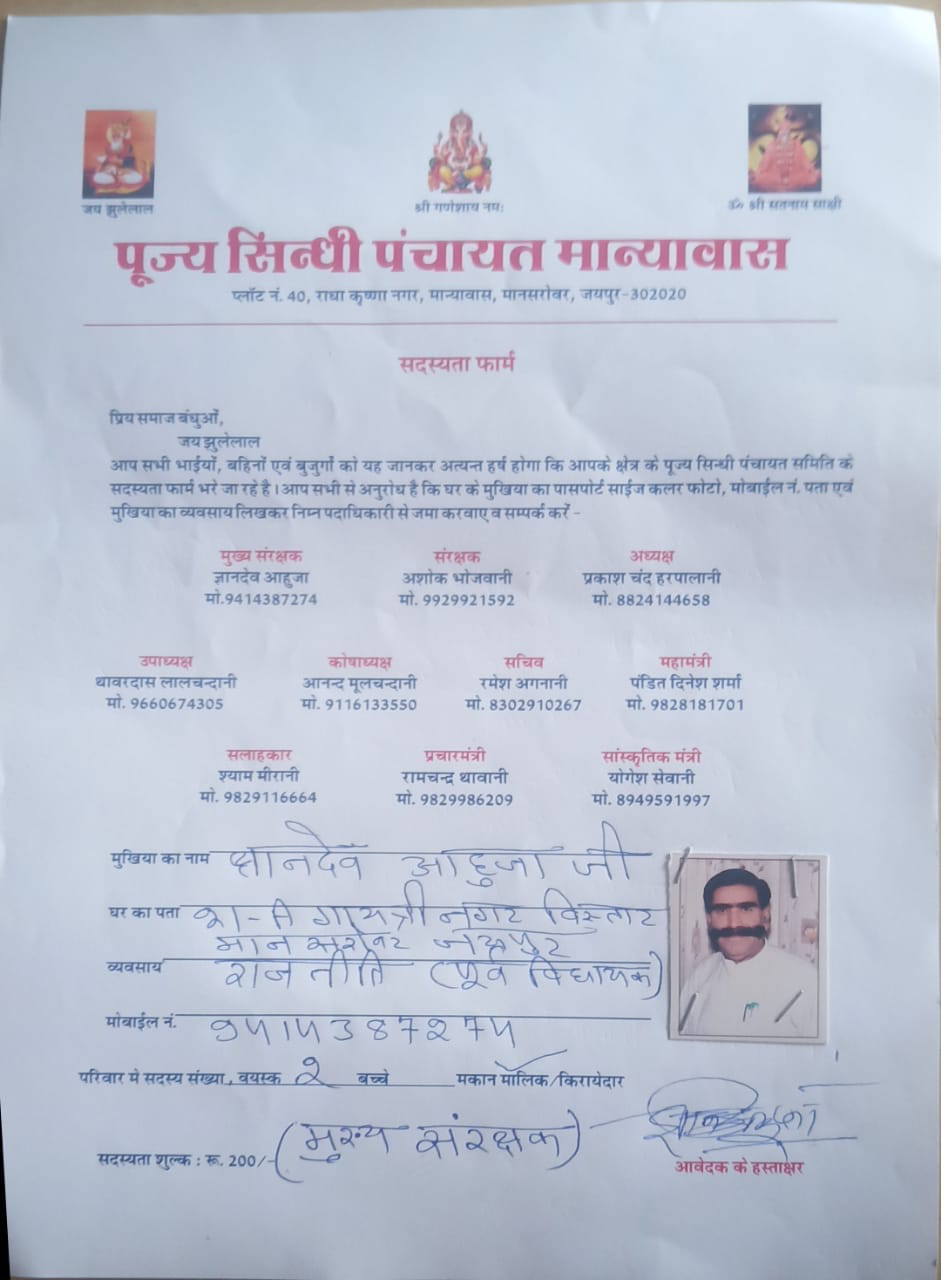 जय झुलेलाल
श्री गणेशाय नमः
ॐ श्री सतनाम साक्षी
पूज्य सिन्धी पंचायत मान्यावास
प्लॉट नं. 40, राधा कृष्णा नगर, मान्यावास, मानसरोवर, जयपुर-302020
सदस्यता फार्म
प्रिय समाज बंधुओं,
जय झुलेलाल
आप सभी भाईयों, बहिनों एवं बुजुर्गो को यह जानकर अत्यन्त हर्ष होगा कि आपके क्षेत्र के पूज्य सिन्धी पंचायत समिति के
सदस्यता फार्म भरे जा रहे है। आप सभी से अनुरोध है कि घर के मुखिया का पासपोर्ट साईज कलर फोटो, मोबाईल नं. पता एवं
मुखिया का व्यवसाय लिखकर निम्न पदाधिकारी से जमा करवाए व सम्पर्क करें -
मुख्य संरक्षक संरक्षक अध्यक्ष
ज्ञानदेव आहुजा अशोक भोजवानी प्रकाश चंद हरपालानी
मो.9414387274 मो. 9929921592 मो. 8824144658
उपाध्यक्ष कोषाध्यक्ष सचिव महामंत्री
थावरदास लालचन्दानी आनन्द मूलचन्दानी रमेश अगनानी पंडित दिनेश शर्मा
मो. 9660674305 मो. 9116133550 मो. 8302910267 मो. 9828181701
सलाहकार प्रचारमंत्री सांस्कृतिक मंत्री
श्याम मीरानी रामचन्द्र थावानी योगेश सेवानी
मो. 9829116664 मो. 9829986209 मो. 8949591997
मुखिया का नाम ज्ञानदेव आहुजा जी
घर का पता २१-A गायत्री नगर विस्तार
मान सरोवर जयपुर
व्यवसाय राजनीति (पूर्व विधायक)
मोबाईल नं. 9414387274
परिवार मे सदस्य संख्या, वयस्क 2 बच्चे मकान मालिक/किरायेदार
(मुख्य संरक्षक)
सदस्यता शुल्क : रू. 200/-
आवेदक के हस्ताक्षर